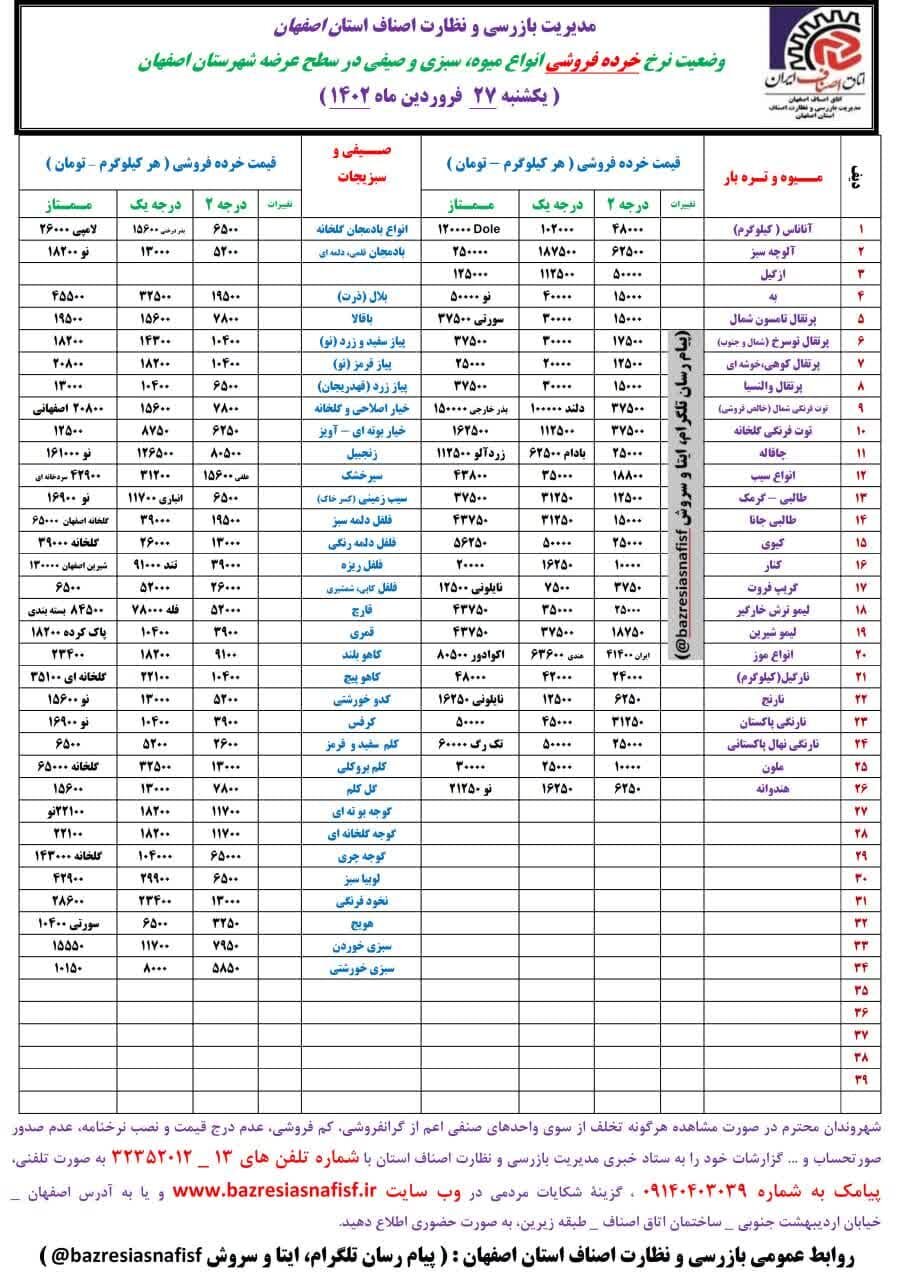 مدیریت بازرسی و نظارت اصناف استان اصفهان
وضعیت نرخ خرده فروشی انواع میوه، سبزی و صیفی در سطح عرضه شهرستان اصفهان
( یکشنبه ۲۷ فروردین ماه ۱۴۰۲ )
اتاق اصناف ایران
اتاق اصناف اصفهان
مدیریت بازرسی و نظارت اصناف
استان اصفهان
ردیف میـــوه و تـره بار قیمت خرده فروشی ( هر کیلوگرم – تومان ) صـــیفی و سبزیجات قیمت خرده فروشی ( هر کیلوگرم – تومان )
تغییرات درجه ۲ درجه یک مــمــتاز تغییرات درجه ۲ درجه یک مــمــتاز
۱ آناناس ( کیلوگرم) ۴۸۰۰۰ ۱۰۲۰۰۰ Dole ۱۲۰۰۰۰ انواع بادمجان گلخانه ۶۵۰۰ بذر درختی ۱۵۶۰۰ لامپی ۲۶۰۰۰
۲ آلوچه سبز ۶۲۵۰۰ ۱۸۷۵۰۰ ۲۵۰۰۰۰ بادمجان قلمی، دلمه ای ۵۲۰۰ ۱۳۰۰۰ نو ۱۸۲۰۰
۳ ازگیل ۵۰۰۰۰ ۱۱۲۵۰۰ ۱۲۵۰۰۰
۴ به ۱۵۰۰۰ ۴۰۰۰۰ نو ۵۰۰۰۰ بلال (ذرت) ۱۹۵۰۰ ۳۲۵۰۰ ۴۵۵۰۰
۵ پرتقال تامسون شمال ۱۵۰۰۰ ۳۰۰۰۰ سورتی ۳۷۵۰۰ باقالا ۷۸۰۰ ۱۵۶۰۰ ۱۹۵۰۰
۶ پرتقال توسرخ (شمال و جنوب) ۱۷۵۰۰ ۳۰۰۰۰ ۳۷۵۰۰ پیاز سفید و زرد (نو) ۱۰۴۰۰ ۱۴۳۰۰ ۱۸۲۰۰
۷ پرتقال کوهی،خوشه ای ۱۲۵۰۰ ۲۰۰۰۰ ۲۵۰۰۰ پیاز قرمز (نو) ۱۰۴۰۰ ۱۸۲۰۰ ۲۰۸۰۰
۸ پرتقال والنسیا ۱۵۰۰۰ ۳۰۰۰۰ ۳۷۵۰۰ پیاز زرد (قهدریجان) ۶۵۰۰ ۱۰۴۰۰ ۱۳۰۰۰
۹ توت فرنگی شمال (خالص فروشی) ۳۷۵۰۰ دلند ۱۰۰۰۰۰ بذر خارجی ۱۵۰۰۰۰ خیار اصلاحی و گلخانه ۷۸۰۰ ۱۵۶۰۰ ۲۰۸۰۰ اصفهانی
۱۰ توت فرنگی گلخانه ۳۷۵۰۰ ۱۱۲۵۰۰ ۱۶۲۵۰۰ خیار بوته ای – آویز ۶۲۵۰ ۸۷۵۰ ۱۲۵۰۰
۱۱ چاقاله ۲۵۰۰۰ بادام ۶۲۵۰۰ زردآلو ۱۱۲۵۰۰ زنجبیل ۸۰۵۰۰ ۱۲۶۵۰۰ نو ۱۶۱۰۰۰
۱۲ انواع سیب ۱۸۸۰۰ ۳۵۰۰۰ ۴۳۸۰۰ سیرخشک علفی ۱۵۶۰۰ ۳۱۲۰۰ ۴۲۹۰۰ سردخانه ای
۱۳ طالبی – گرمک ۱۲۵۰۰ ۳۱۲۵۰ ۳۷۵۰۰ سیب زمینی (کسر خاک) ۶۵۰۰ انباری ۱۱۷۰۰ نو ۱۶۹۰۰
۱۴ طالبی جانا ۱۵۰۰۰ ۳۱۲۵۰ ۴۳۷۵۰ فلفل دلمه سبز ۱۹۵۰۰ ۳۹۰۰۰ گلخانه اصفهان ۶۵۰۰۰
۱۵ کیوی ۲۵۰۰۰ ۵۰۰۰۰ ۵۶۲۵۰ فلفل دلمه رنگی ۱۳۰۰۰ ۲۶۰۰۰ گلخانه ۳۹۰۰۰
۱۶ کنار ۱۰۰۰۰ ۱۶۲۵۰ ۲۰۰۰۰ فلفل ریزه ۳۹۰۰۰ تند ۹۱۰۰۰ شیرین اصفهان ۱۳۰۰۰۰
۱۷ گریپ فروت ۳۷۵۰ ۷۵۰۰ نایلونی ۱۲۵۰۰ فلفل کاپی، شمشیری ۲۶۰۰۰ ۵۲۰۰۰ ۶۵۰۰
۱۸ لیمو ترش خارگیر ۲۵۰۰۰ ۳۵۰۰۰ ۴۳۷۵۰ قارچ ۵۲۰۰۰ فله ۷۸۰۰۰ ۸۴۵۰۰ بسته بندی
۱۹ لیمو شیرین ۱۸۷۵۰ ۳۷۵۰۰ ۴۳۷۵۰ قمری ۳۹۰۰ ۱۰۴۰۰ پاک کرده ۱۸۲۰۰
۲۰ انواع موز ایران ۴۱۴۰۰ هندی ۶۳۶۰۰ اکوادور ۸۰۵۰۰ کاهو بلند ۹۱۰۰ ۱۸۲۰۰ ۲۳۴۰۰
۲۱ نارگیل(کیلوگرم) ۲۴۰۰۰ ۴۲۰۰۰ ۴۸۰۰۰ کاهو پیچ ۱۰۴۰۰ ۲۲۱۰۰ گلخانه ای ۳۵۱۰۰
۲۲ نارنج ۶۲۵۰ ۱۲۵۰۰ نایلونی ۱۶۲۵۰ کدو خورشتی ۵۲۰۰ ۱۳۰۰۰ نو ۱۵۶۰۰
۲۳ نارنگی پاکستان ۳۱۲۵۰ ۴۵۰۰۰ ۵۰۰۰۰ کرفس ۳۹۰۰ ۱۰۴۰۰ نو ۱۶۹۰۰
۲۴ نارنگی نهال پاکستانی ۲۵۰۰۰ ۵۰۰۰۰ تک رگ ۶۰۰۰۰ کلم سفید و قرمز ۲۶۰۰ ۵۲۰۰ ۶۵۰۰
۲۵ ملون ۱۰۰۰۰ ۲۵۰۰۰ ۳۰۰۰۰ کلم بروکلی ۱۳۰۰۰ ۳۲۵۰۰ گلخانه ۶۵۰۰۰
۲۶ هندوانه ۶۲۵۰ ۱۶۲۵۰ نو ۲۱۲۵۰ گل کلم ۷۸۰۰ ۱۳۰۰۰ ۱۵۶۰۰
۲۷ گوجه بوته ای ۱۱۷۰۰ ۱۸۲۰۰ ۲۲۱۰۰نو
۲۸ گوجه گلخانه ای ۱۱۷۰۰ ۱۸۲۰۰ ۲۲۱۰۰
۲۹ گوجه چری ۶۵۰۰۰ ۱۰۴۰۰۰ گلخانه ۱۴۳۰۰۰
۳۰ لوبیا سبز ۶۵۰۰ ۲۹۹۰۰ ۴۲۹۰۰
۳۱ نخود فرنگی ۱۳۰۰۰ ۲۳۴۰۰ ۲۸۶۰۰
۳۲ هویج ۳۲۵۰ ۶۵۰۰ سورتی ۱۰۴۰۰
۳۳ سبزی خوردن ۷۹۵۰ ۱۱۷۰۰ ۱۵۵۵۰
۳۴ سبزی خورشتی ۵۸۵۰ ۸۰۰۰ ۱۰۱۵۰
۳۵
۳۶
۳۷
۳۸
۳۹
(پیام رسان تلگرام، ایتا و سروش bazresiasnafisf@)
شهروندان محترم در صورت مشاهده هرگونه تخلف از سوی واحدهای صنفی اعم از گرانفروشی، کم فروشی، عدم درج قیمت و نصب نرخنامه، عدم صدور
صورتحساب و ... گزارشات خود را به ستاد خبری مدیریت بازرسی و نظارت اصناف استان با شماره تلفن های ۱۳ _ ۳۲۳۵۲۰۱۲ به صورت تلفنی،
پیامک به شماره ۰۹۱۴۰۴۰۳۰۳۹ ، گزینۀ شکایات مردمی در وب سایت www.bazresiasnafisf.ir و یا به آدرس اصفهان _
خیابان اردیبهشت جنوبی _ ساختمان اتاق اصناف _ طبقه زیرین، به صورت حضوری اطلاع دهید.
روابط عمومی بازرسی و نظارت اصناف استان اصفهان : ( پیام رسان تلگرام، ایتا و سروش bazresiasnafisf@ )